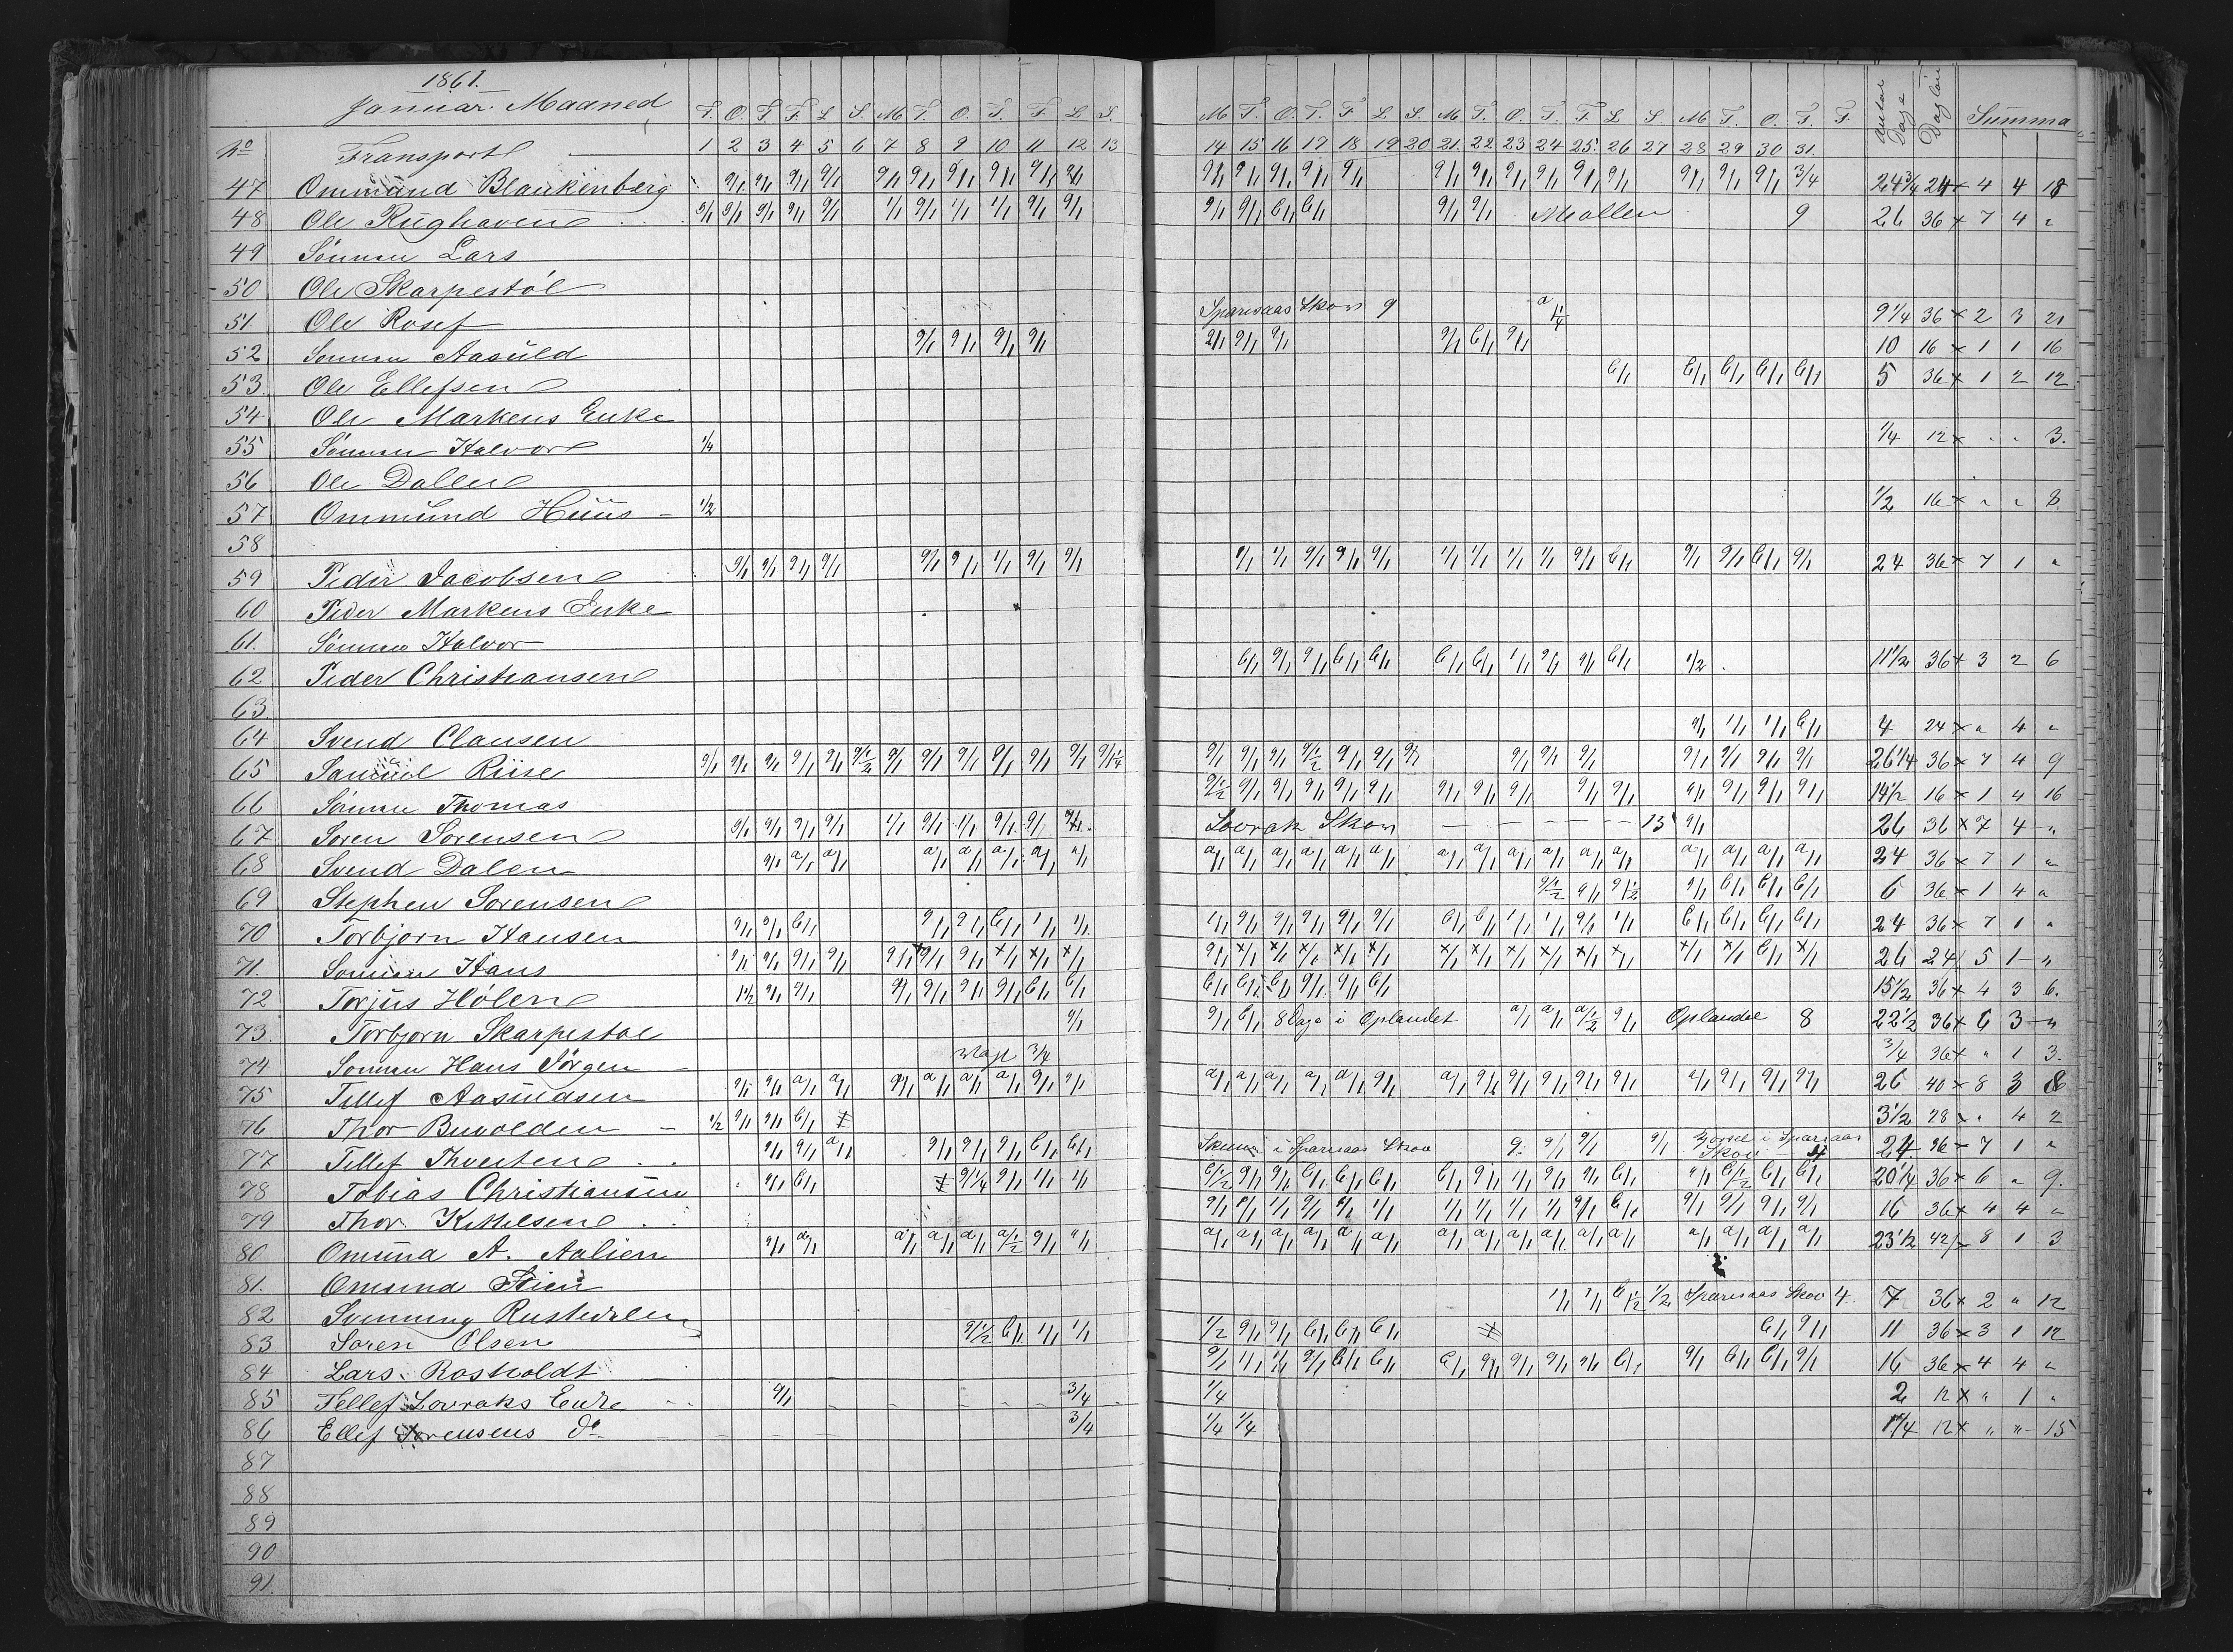 1861.
Januar Maaned
T. O. T F. L S. M T. O. T. F. L S. M T. O. T. F L S. M T. O. T. F. L S. M T. O. T. F. Antal Dage Dagløn Summa
No Transport 1 2 3 4 5 6 7 8 9 10 11 12 13 14 15 16 17 18 19 20 21 22 23 24 25 26 27 28 29 30 31.
47 Ommund Blankenberg 9/1 9/1 9/1 9/1 9/1 9/1 9/1 9/1 9/1 9/1 9/1 9/1 9/1 9/1 9/1 9/1 9/1 9/1 9/1 9/1 9/1 9/1 9/1 9/1 3/4 24 3/4 24 x 4 4 18
48 Ole Rughaven 9/1 9/1 9/1 9/1 9/1 1/1 9/1 1/1 1/1 9/1 9/1 9/1 9/1 6/1 6/1 9/1 9/1 Mollen 9 26 36 x 7 4 "
49 Sønnen Lars
50 Ole Skarpestøl
51 Ole Rosef Sparesaas Skov 9 a 1/4 9 1/4 36 x 2 3 21
52 Sønnen Aasuld 9/1 9/1 9/1 9/1 2/1 9/1 9/1 9/1 6/1 9/1 10 16 x 1 1 16
53 Ole Ellefsen 6/1 6/1 6/1 6/1 6/1 5 36 x 1 2 12
54 Ole Markens Enke
55 Sønnen Halvor 1/4 1/4 12 x " " 3.
56 Ole Dallen
57 Ommund Huus 1/2 1/2 16 x " " 8
58
59 Peder Jacobsen 9/1 9/1 9/1 9/1 9/1 9/1 1/1 9/1 9/1 9/1 1/1 9/1 9/1 9/1 1/1 1/1 1/1 1/1 9/1 6/1 9/1 9/1 6/1 9/1 24 36 x 7 1 "
60 Peder Markens Enke
61. Sønnen Halvor
62 Peder Christiansen 6/1 9/1 9/1 6/1 6/1 6/1 6/1 1/1 9/1 9/1 6/1 1/2 11 1/2 36 x 3 2 6
63
64 Svend Clausen 9/1 1/1 1/1 6/1 4 24 x " 4 "
65 Samuel Riise 9/1 9/1 9/1 9/1 9/1 9 1/2 9/1 9/1 9/1 9/1 9/1 9/1 9/1 1/4 9/1 9/1 9/1 9 1/2 9/1 9/1 9/1 9/1 9/1 9/1 9/1 9/1 9/1 9/1 26 1/4 36 x 7 4 9
66 Sønnen Thomas 9 1/2 9/1 9/1 9/1 9/1 9/1 9/1 9/1 9/1 9/1 9/1 9/1 9/1 9/1 9/1 14 1/2 16 x 1 4 16
67 Søren Sørensen 9/1 9/1 9/1 9/1 1/1 9/1 1/1 9/1 9/1 Lovrak Skov 15 9/1 26 36 x 7 4 "
68 Svend Dalen 9/1 a/1 a/1 a/1 a/1 a/1 a/1 a/1 a/1 a/1 a/1 a/1 a/1 a/1 a/1 a/1 a/1 a/1 a/1 a/1 a/1 a/1 a/1 a/1 24 36 x 7 1 "
69 Stephen Sørensen 9 1/2 9/1 9 1/2 9/1 6/1 6/1 6/1 6 36 x 1 4 "
70 Torbjorn Hansen 9/1 9/1 6/1 9/1 9/1 6/1 1/1 1/1 1/1 9/1 9/1 9/1 9/1 9/1 6/1 6/1 1/1 1/1 9/1 1/1 6/1 6/1 6/1 6/1 24 36 x 7 1 "
71. Sønnen Hans 9/1 9/1 9/1 9/1 9/1 x9/1 9/1 x/1 x/1 x/1 9/1 x/1 x/1 x/1 x/1 x/1 x/1 x/1 x/1 x/1 x/1 x/1 x/1 x/1 6/1 x/1 26 24 5 1 "
72 Torjus Hølen 1 1/2 9/1 9/1 9/1 9/1 9/1 9/1 6/1 6/1 6/1 6/1 6/1 9/1 9/1 6/1 15 1/2 36 x 4 3 6.
73. Torbjorn Skarpestøl 9/1 9/1 6/1 8 Dage i Oplandet a/1 a/1 a 1/2 9/1 Oplandet 8 22 1/2 36 x 6 3 "
74 Sønnen Hans Jørgen 3/4 3/4 36 x " 1 3.
75 Tellef Aasuldsen 9/1 9/1 a/1 a/1 9/1 a/1 a/1 a/1 9/1 9/1 a/1 a/1 a/1 a/1 a/1 9/1 a/1 9/1 9/1 9/1 9/1 9/1 a/1 9/1 9/1 9/1 26 40 x 8 3 8
76 Thor Buvolden 1/2 9/1 9/1 6/1 3 1/2 28 x " 4 2
77 Tellef Thveiten 9/1 9/1 a/1 9/1 9/1 9/1 6/1 6/1 i Sparesaas Skov 9. 9/1 9/1 9/1 i Sparsaas Skov 4 24 36 7 1 "
78 Tobias Christiansen 9/1 6/1 9 1/4 9/1 1/1 1/1 6 1/2 9/1 9/1 6/1 6/1 6/1 6/1 9/1 1/1 9/1 9/1 6/1 9/1 6 1/2 6/1 6/1 20 1/4 36 x 6 " 9.
79 Thor Kittelsen 9/1 9/1 1/1 9/1 9/1 1/1 1/1 1/1 1/1 1/1 9/1 6/1 9/1 9/1 9/1 9/1 16 36 x 4 4 "
80 Omund A. Aalien 9/1 a/1 a/1 a/1 a/1 a 1/2 9/1 a/1 a/1 a/1 a/1 a/1 a/1 a/1 a/1 a/1 a/1 a/1 a/1 a/1 a/1 a/1 a/1 a/1 23 1/2 42 8 1 3
81. Omund Stien
82 Svenning Rustedalen 1/1 1/1 6 1/2 1/2 Sparesaas Skov 4 7 36 x 2 " 12
83 Søren Olsen 9 1/2 6/1 1/1 1/1 1/2 9/1 9/1 6/1 6/1 6/1 6/1 9/1 11 36 x 3 1 12
84 Lars Rosholdt 9/1 1/1 1/1 9/1 6/1 6/1 6/1 9/1 9/1 9/1 9/1 6/1 9/1 6/1 6/1 9/1 16 36 x 4 4 "
85 Tellef Lovraks Enke 9/1 3/4 1/4 2 12 x " 1 "
86 Ellef Sørensens do 3/4 1/4 1/4 1 1/4 12 x " " 15
87
88
89
90
91.